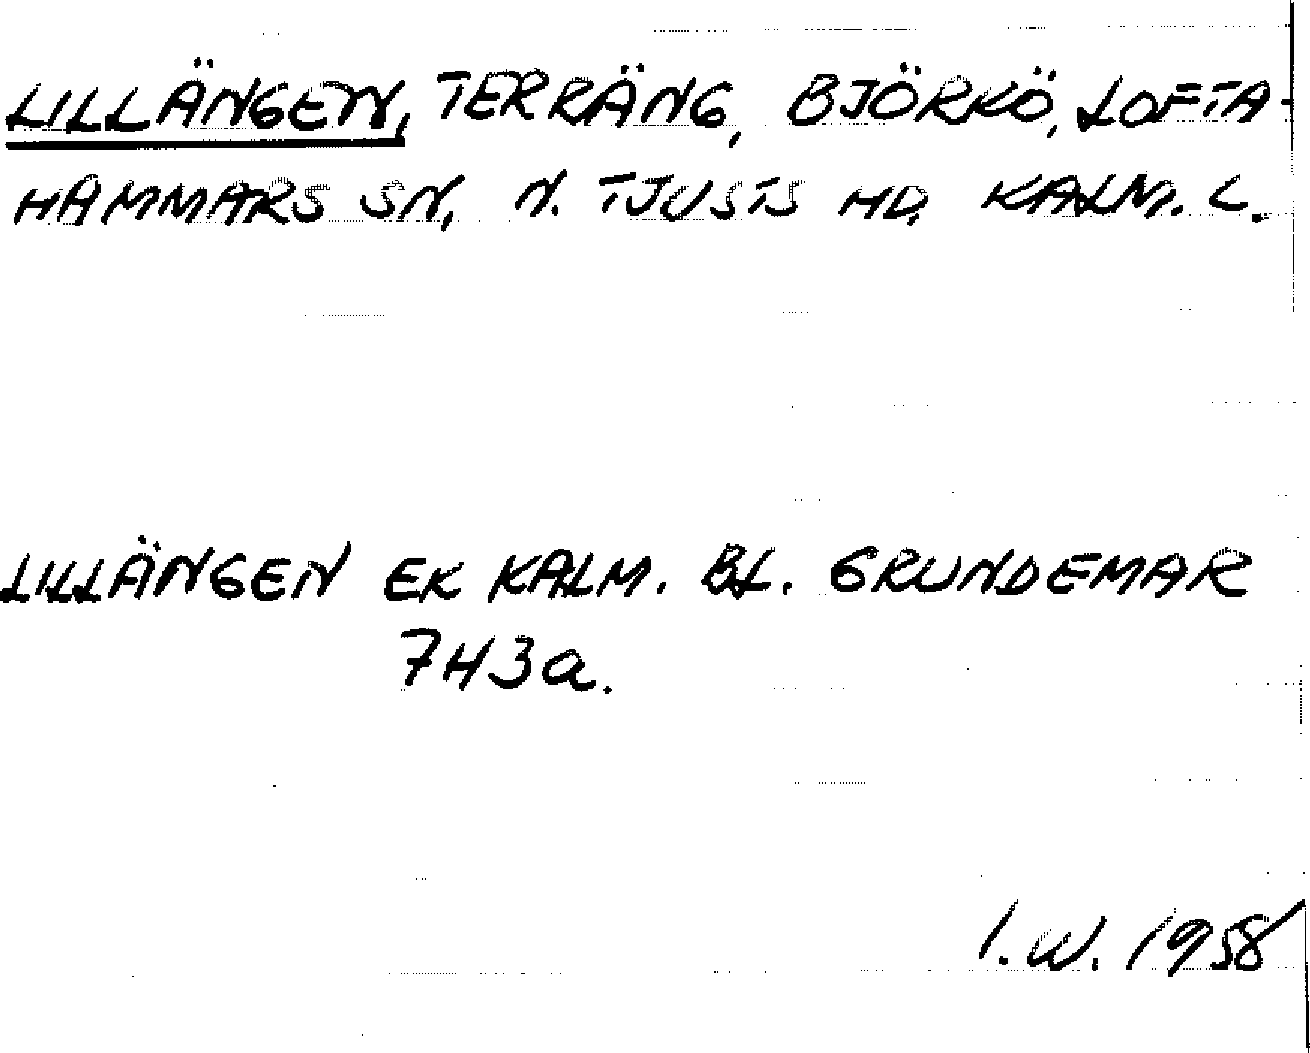 LILLÄNGEN, TERRÄNG, BJÖRKÖ, LOFTA-
HAMMARS SN, N. TJUSTS HD, KALM. L.
LILLÄNGEN EK KALM. BL. GRUNDEMAR
7H3a.
I.W. 1958